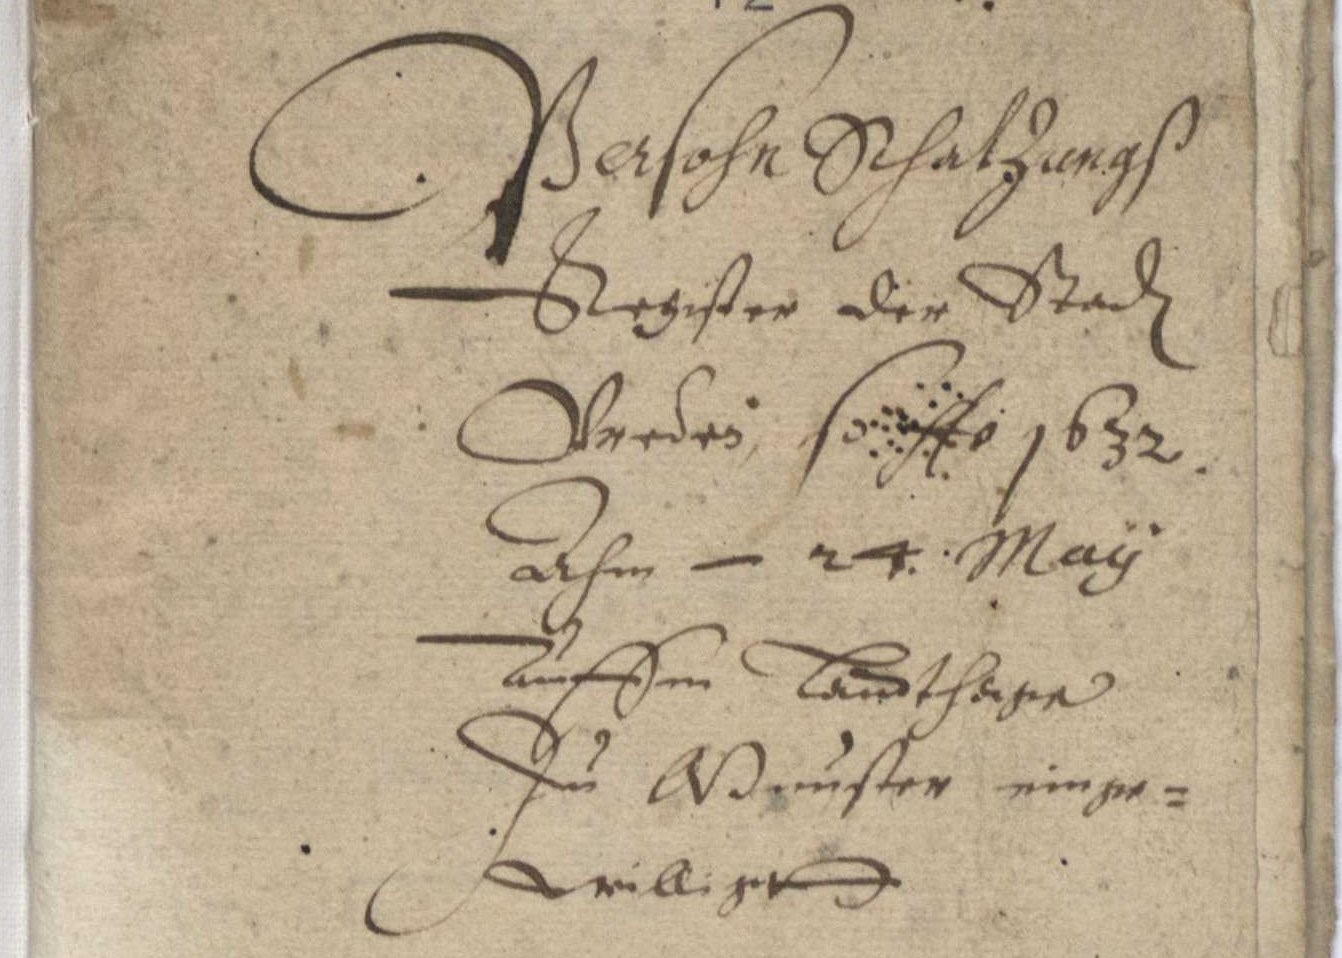 Persohn Schatzungß
Register der Stadt
Vreden, so 1632.
Ahm – 24. Maÿ
auffm Landthage
Zu Münster einge=
williget